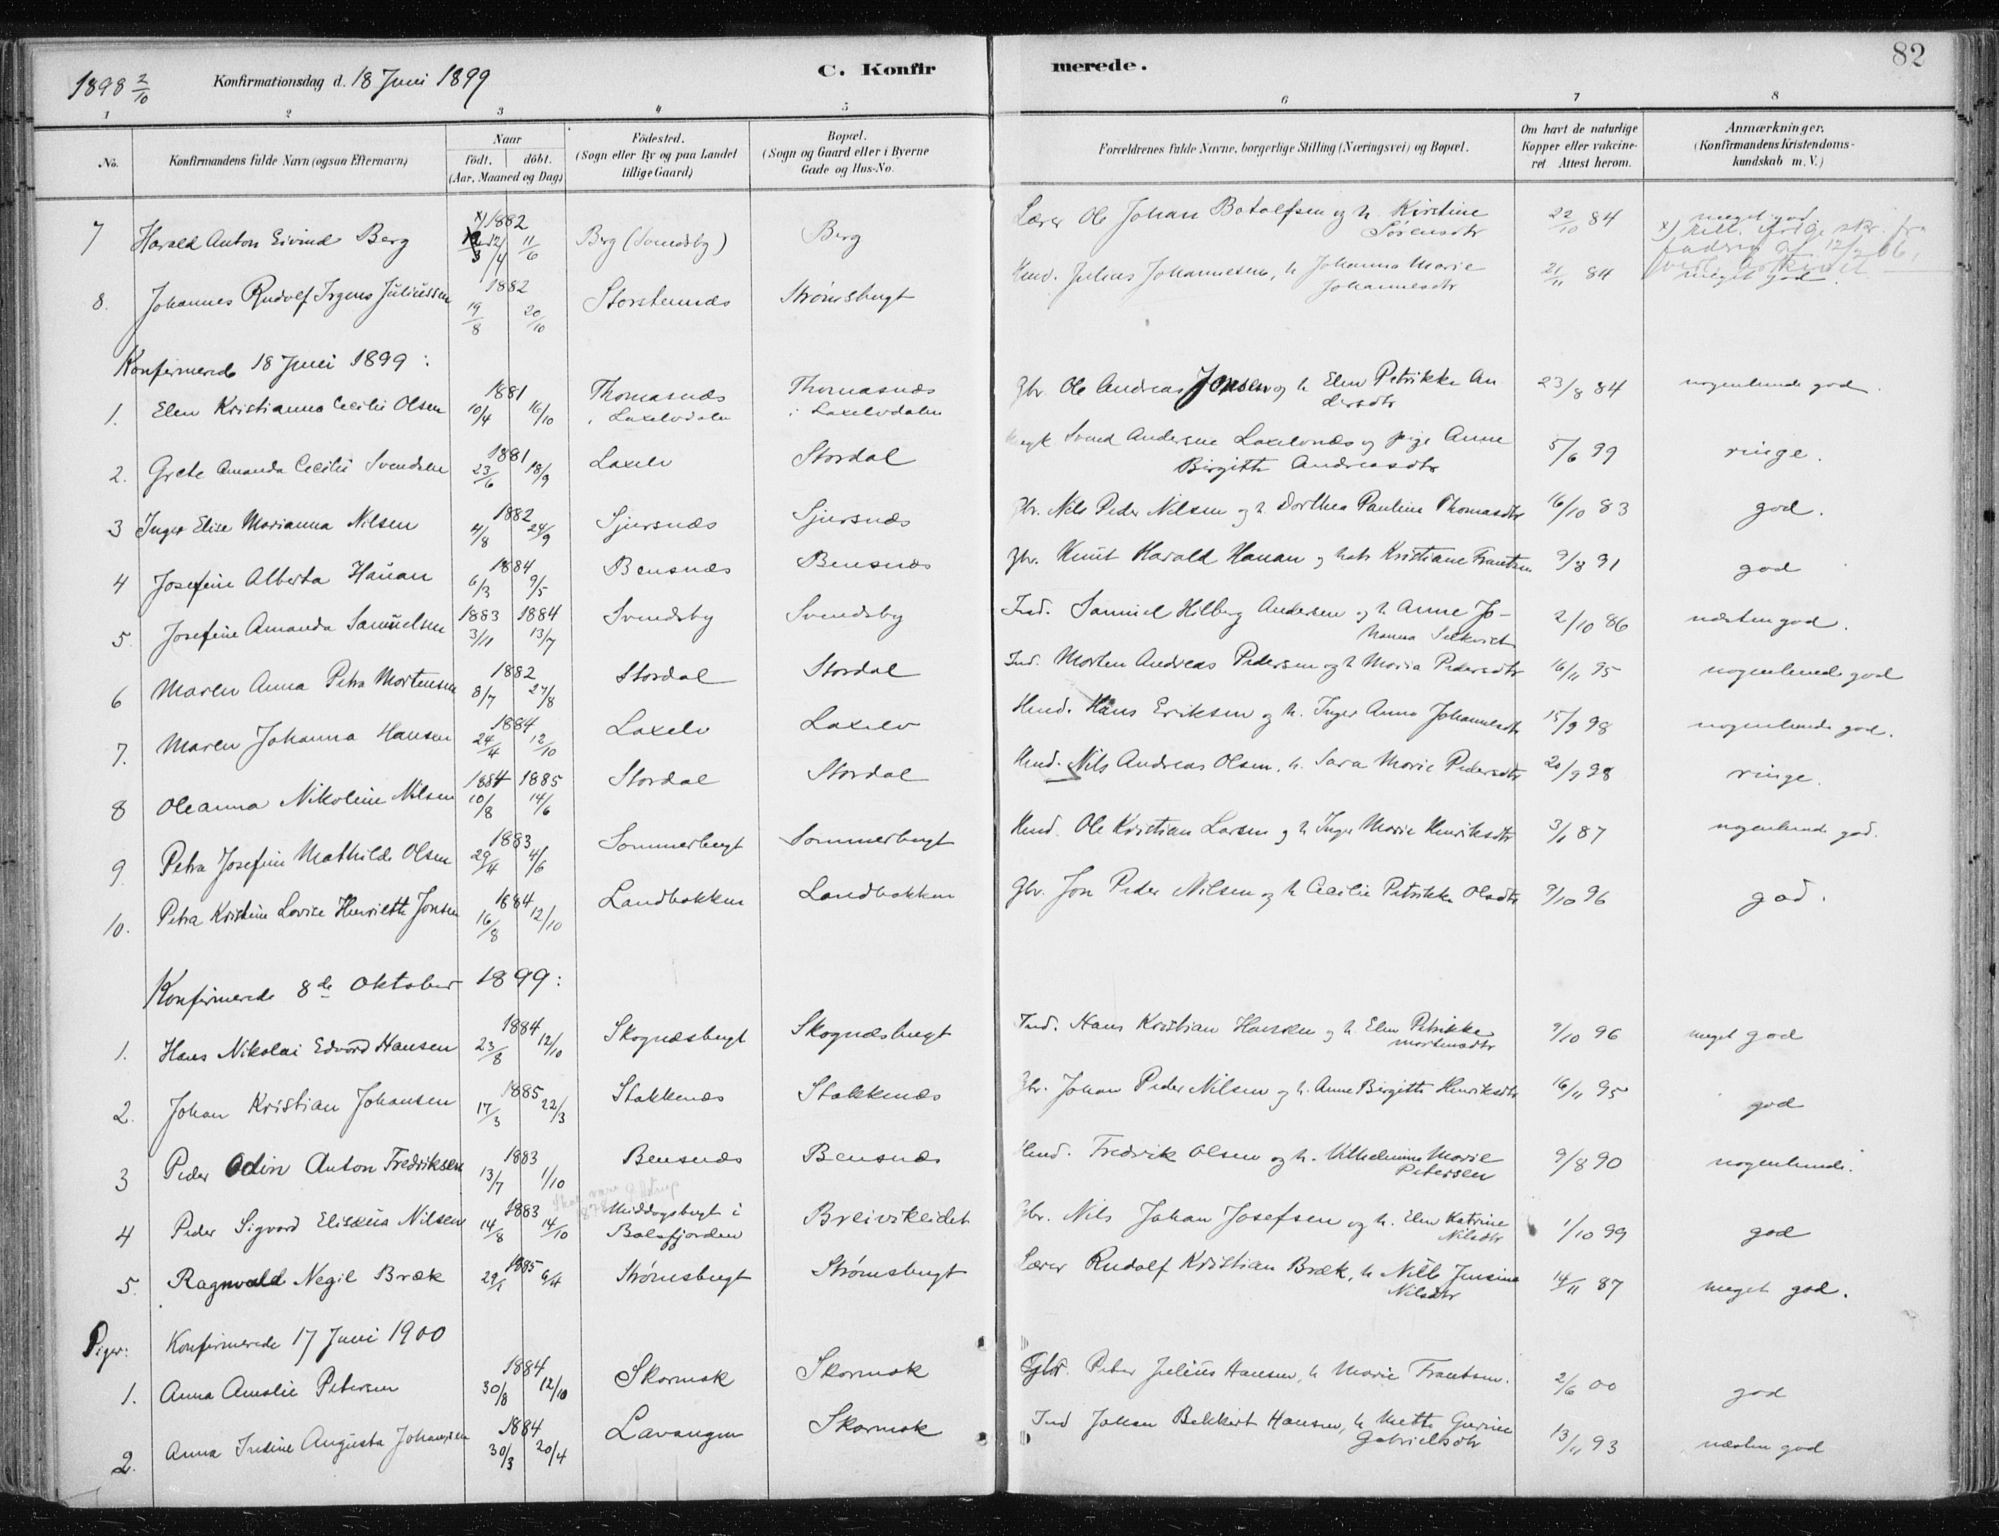 82
1898 2/10 Konfirmationsdag d. 18 Juni 1899 C. Konfir merede.
1 2 3 4 5 6 7 8
No. Konfirmandens fulde Navn (ogsaa Efternavn) Naar födt. döbt. (Aar, Maaned og Dag) Födested. (Sogn eller By og paa Landet tillige Gaard) Bopæl. (Sogn og Gaard eller i Byerne Gade og Hus-No. Forældrenes fulde Navne, borgerlige Stilling (Næringsvei) og Bopæl. Om havt de naturlige Kopper eller vakcineret. Attest herom. Anmærkninger. (Konfirmandens Kristendomskundskab m. V.)
7 Harald Anton Eivind Berg x) 1882 12/4 11/6 Berg (Svendsby) Berg Lærer Ole Johan Botolfsen og h. Kirstine Sørensdtr 22/10 84 meget god
8. Johannes Rudolf Irgens Juliussen 1882 19/8 20/10 Storstennæs Strømsbugt Hmd. Julius Johannesen, h Johanna Marie Johannesdtr 21/11 84 meget god.
Konfirmerede 18 Juni 1899:
1. Elen Kristianna Cecilie Olsen 1881 10/4 16/10 Thomasnæs i Laxelvdalen Thomasnæs i Laxelvdalen Gbr. Ole Andreas Jensen og h Elen Petrikke Andersdtr 23/8 84 nogenlunde god.
2. Grete Amanda Cecilie Svendsen 1881 23/6 18/9 Laxelv Stordal Svend Andersen Laxelvnæs og pige Anne Birgitte Andreasdtr 5/6 99 ringe.
3 Inger Elise Marianna Nilsen 1882 4/8 24/9 Sjursnæs Sjursnæs Gbr. Nils Peder Nilsen og h. Dorthea Pauline Thomasdtr 16/10 83 god.
4 Josefine Alberta Hauan 1884 6/3 9/5 Bensnæs Bensnæs Gbr. Knut Harald Hauan og h. Kristiane Frantsen 9/8 91 god
5. Josefine Amanda Samuelsen 1883 3/11 1884 13/7 Svendsby Svendsby Ind. Samuel Hilberg Andersen og h Anne Johanna 2/10 86 næsten god.
6 Maren Anna Petra Mortensen 1882 8/7 27/8 Stordal Stordal Ind. Morten Andreas Pedersen og h Maria Pedersdtr 16/11 95 nogenlunde god
7. Maren Johanna Hansen 1884 24/4 12/10 Laxelv Laxelv Hmd. Hans Eriksen og h. Inger Anna Johannesdtr 15/9 98 nogenlunde god.
8 Oleanna Nikoline Nilsen 1884 10/8 1885 14/6 Stordal Stordal Hmd. Nils Andreas Olsen, h. Sara Marie Pedersdtr 20/9 98 ringe.
9. Petra Josefine Mathilde Olsen 1883 29/4 4/6 Sommerbugt Sommerbugt Hmd. Ole Kristian Larsen og h Inger Marie Henriksdtr 3/1 87 nogenlunde god.
10. Petra Kristine Lovise Henriette Jonsen 1884 16/8 12/10 Landbakken Landbakken Gbr. Jon Peder Nilsen og h Cecilie Petrikke Olsdtr 9/10 96 god.
Konfirmerede 8de Oktober 1899:
1. Hans Nikolai Edvard Hansen 1884 23/8 12/10 Skognæsbugt Skognæsbugt Ind. Hans Kristian Hansen og h. Elen Petrikke Mortensdtr 9/10 96 meget god
2. Johan Kristian Johansen 1885 17/3 22/3 Stakkenæs Stakkenæs Gbr. Johan Peder Nilsen og h. Anne Birgitte Henriksdtr 16/11 95 god
3 Peder Odin Anton Fredriksen 1883 13/7 1/10 Bensnæs Bensnæs Hmd. Fredrik Olsen og h. Vilhelmine Marie Petersen 9/8 90 nogenlunde.
4 Peder Sigvard Eliseus Nilsen 1883 14/8 14/10 Middagsbugt i Balsfjorden Breivikeidet Gbr. Nils Johan Josefsen og h. Elen Katrine Nilsdtr 1/10 99 god
5. Ragnvald Negil Bræk 1885 29/1 6/4 Strømsbugt Strømsbugt Lærer Rudolf Kristian Bræk, h Nille Jensine Nilsdtr 14/11 87 meget god.
Piger: Konfirmerede 17 Juni 1900
1. Anna Amalie Petersen 1884 30/8 12/10 Skarmok Skarmok Gbr. Peter Julius Hansen, h Marie Frantsen. 2/6 00 god
2. Anna Indine Augusta Johansen 1884 30/3 20/4 Lavangen Skarmok Ind Johan Bekkert Hansen, h Mette Gurine Gabrielsdtr 13/11 93 næsten god